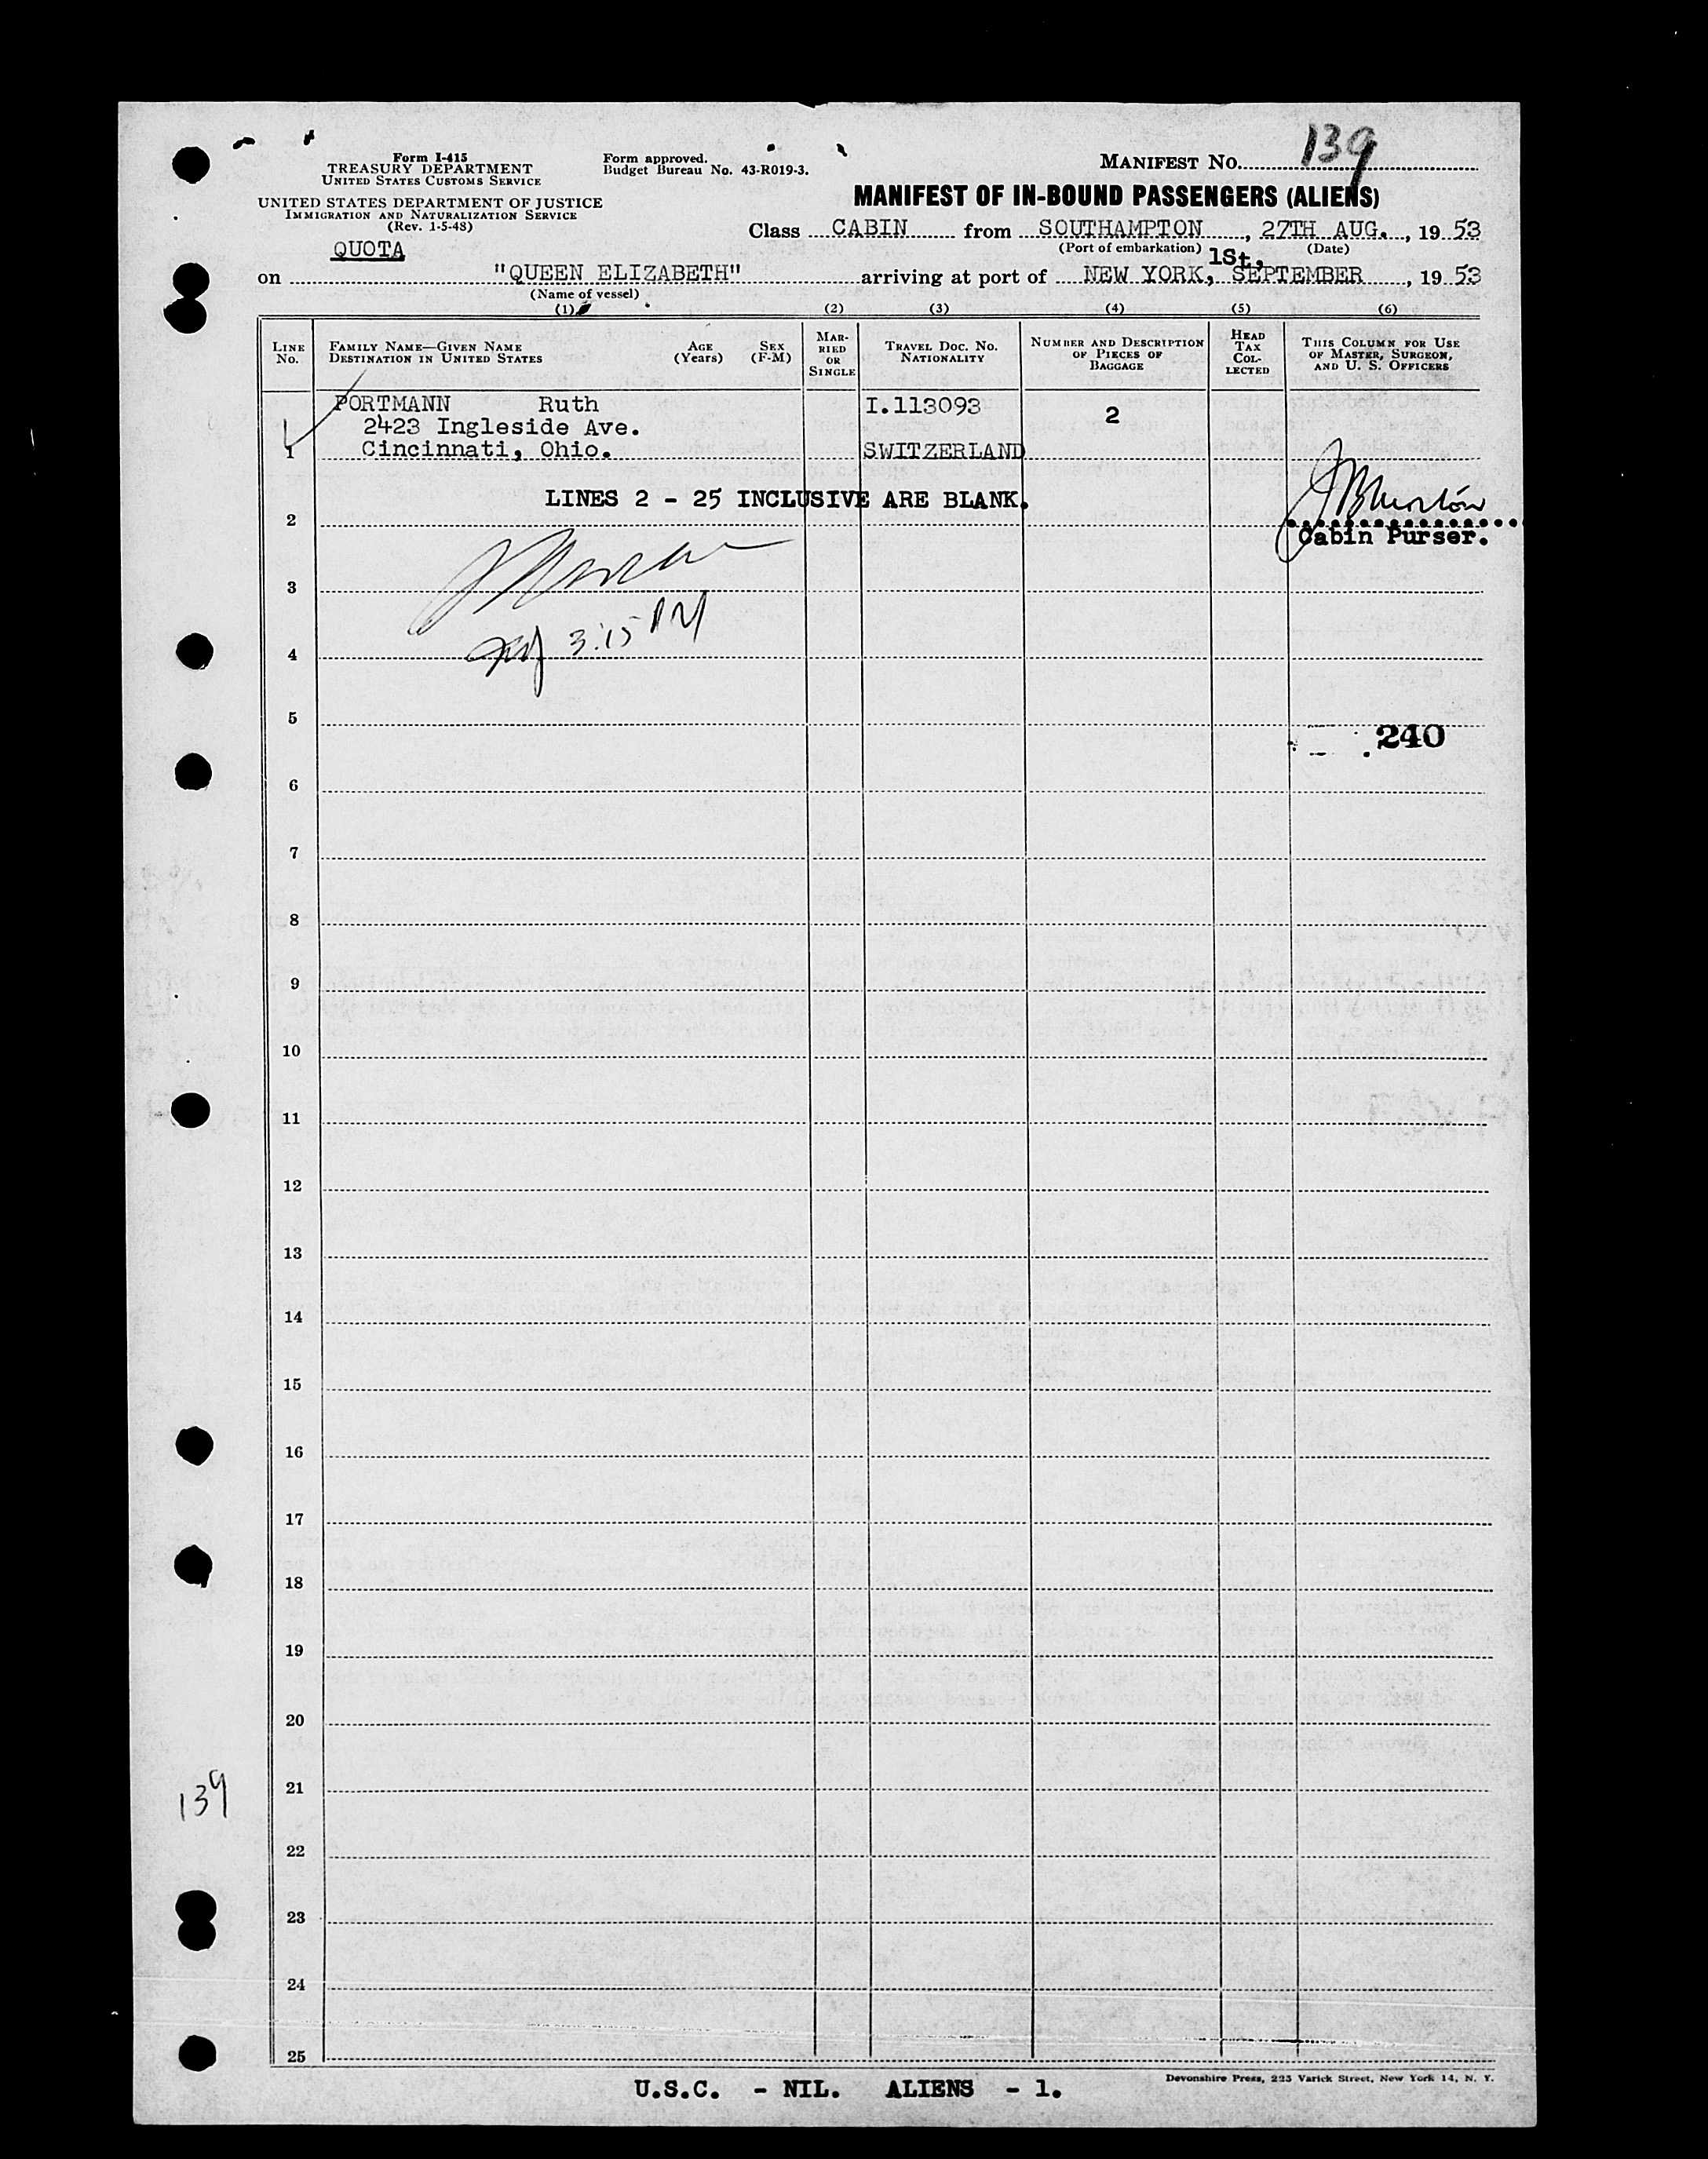 Form I-415
TREASURY DEPARTMENT
UNITED STATES CUSTOMS SERVICE
UNITED STATES DEPARTMENT OF JUSTICE
IMMIGRATION AND NATURALIZATION SERVICE
(Rev. 1-5-48)
Form approved.
Budget Bureau No. 43-R019-3.
MANIFEST NO. 139
MANIFEST OF IN-BOUND PASSENGERS (ALIENS)
Class CABIN from SOUTHAMPTON, 27TH AUG., 19 53
(Port of embarkation) (Date)
QUOTA
1St,
on "QUEEN ELIZABETH" arriving at port of NEW YORK, SEPTEMBER, 19 53
(Name of vessel)
(1) (2) (3) (4) (5) (6)
LINE NO.
FAMILY NAME—GIVEN NAME
DESTINATION IN UNITED STATES
AGE (Years)
SEX (F-M)
MARRIED OR SINGLE
TRAVEL DOC. NO.
NATIONALITY
NUMBER AND DESCRIPTION
OF PIECES OF
BAGGAGE
HEAD
TAX
COL-
LECTED
THIS COLUMN FOR USE
OF MASTER, SURGEON,
AND U. S. OFFICERS
PORTMANN Ruth I.113093 2
2423 Ingleside Ave.
1 Cincinnati, Ohio. SWITZERLAND
LINES 2 - 25 INCLUSIVE ARE BLANK.
2
Cabin Purser.
3
3:15 PM
4
5
240
6
7
8
9
10
11
12
13
14
15
16
17
18
19
20
21
139
22
23
24
25
Devonshire Press, 225 Varick Street, New York 14, N. Y.
U.S.C. - NIL. ALIENS - 1.